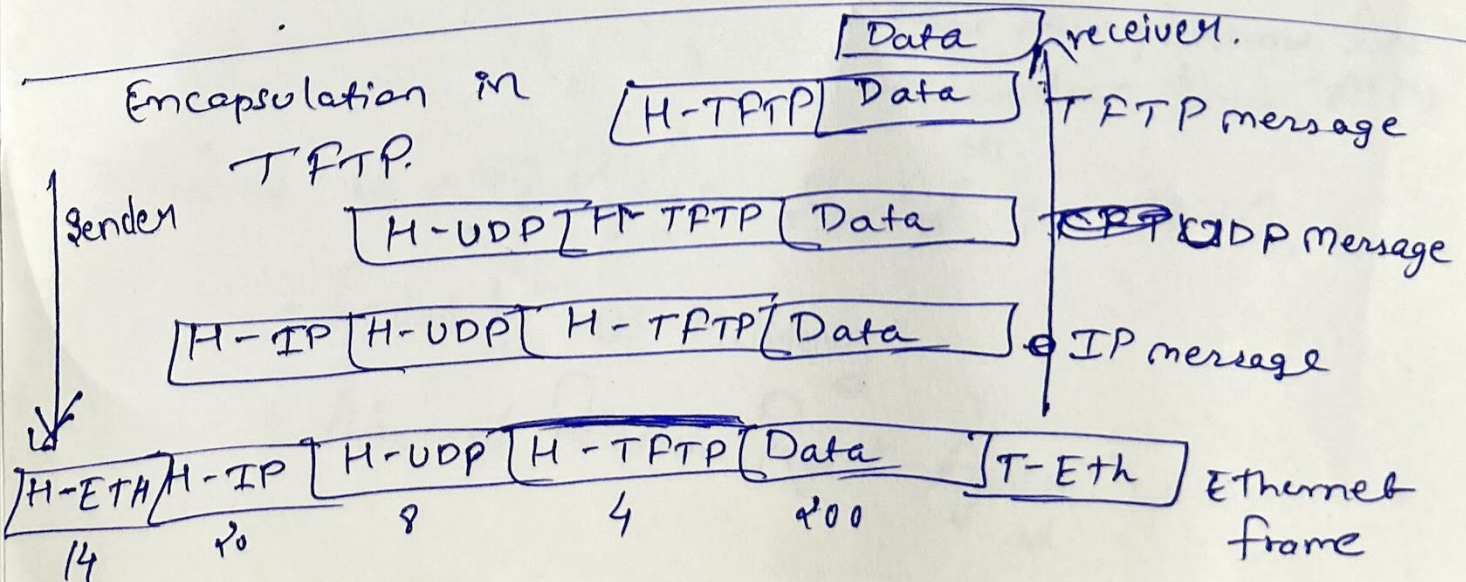 Data receiver.
Encapsulation in H-TFTP Data TFTP message
TFTP.
Sender H-UDP H-TFTP Data UDP Message
H-IP H-UDP H-TFTP Data IP message
H-ETH H-IP H-UDP H-TFTP Data T-Eth Ethernet
14 20 8 4 200 frame